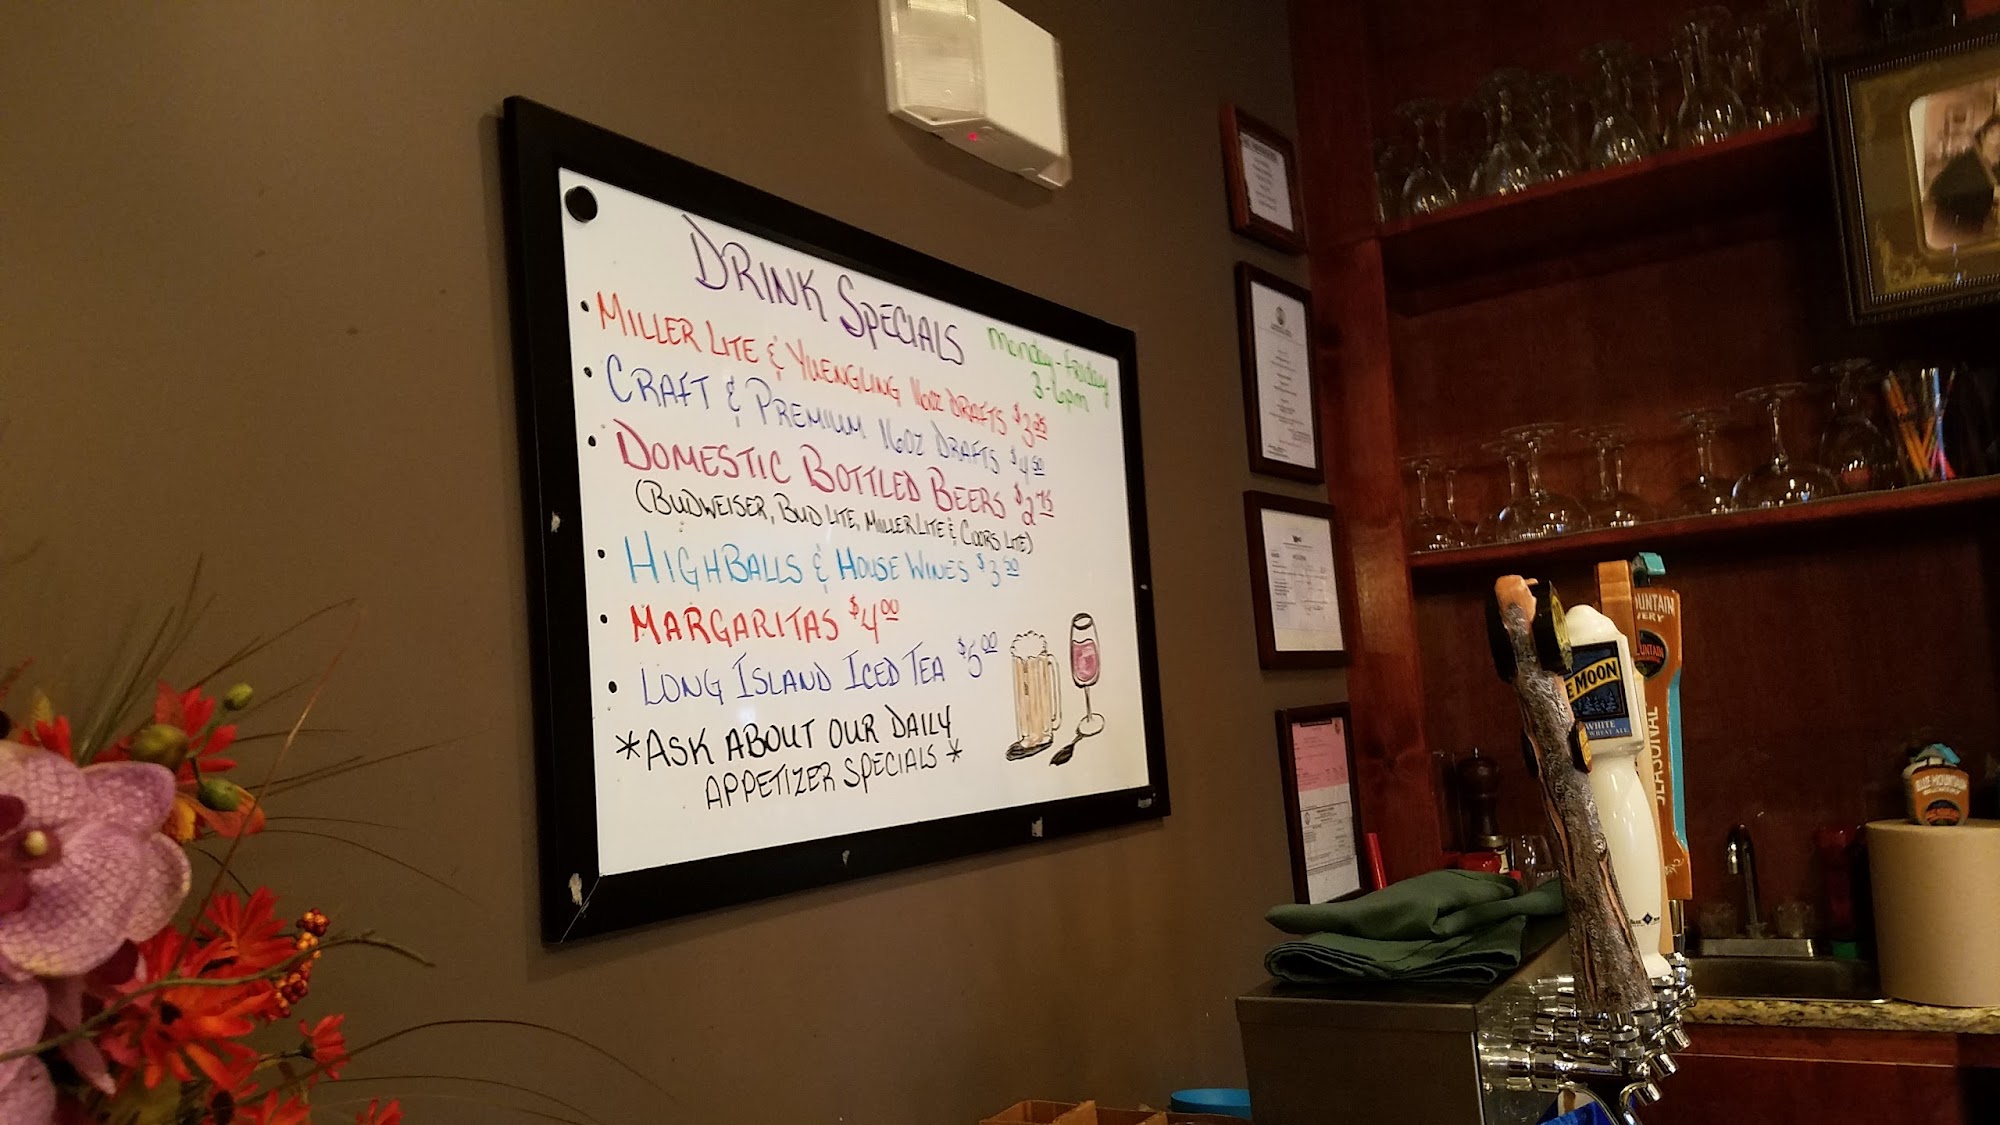 DRINK SPECIALS
Monday-Friday
3-6pm
• MILLER LITE & YUENGLING 16oz DRAFTS $3.25
• CRAFT & PREMIUM 16oz DRAFTS $4.50
• DOMESTIC BOTTLED BEERS $2.75
(BUDWEISER, BUD LITE, MILLER LITE & COORS LITE)
• HIGHBALLS & HOUSE WINES $3.50
• MARGARITAS $4.00
• LONG ISLAND ICED TEA $5.00
*ASK ABOUT OUR DAILY
APPETIZER SPECIALS*
E MOON
WHITE
WHEAT ALE
UNTAIN
ERY
UNTAIN
SEASONAL
BLUE MOUNTAIN